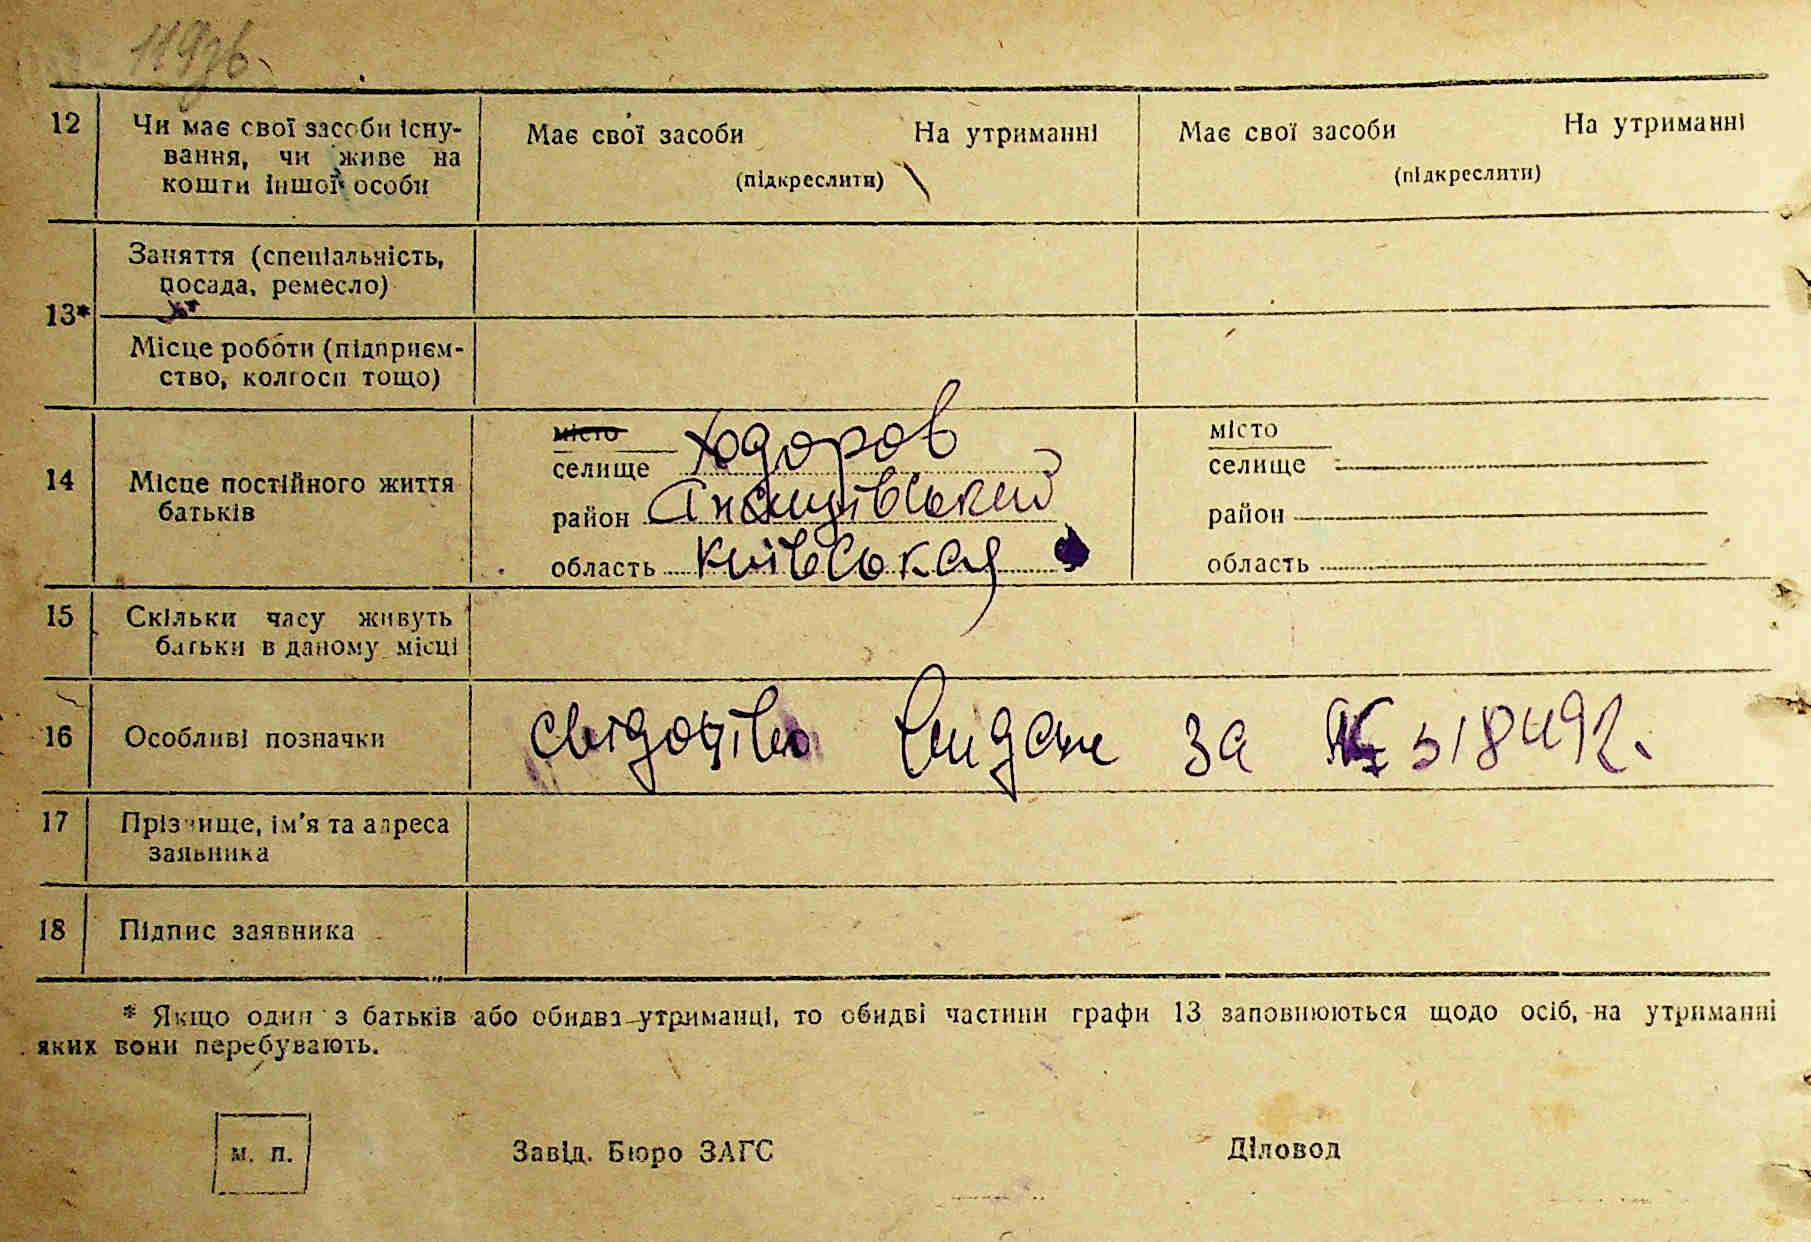 119зв
12
Чи має свої засоби існу-
вання, чи живе на
кошти іншої особи
Має свої засоби На утриманні
(підкреслити)
Має свої засоби На утриманні
(підкреслити)
13*
Заняття (спеціальність,
посада, ремесло)
Місце роботи (підприєм-
ство, колгосп тощо)
14
Місце постійного життя
батьків
місто
селище Ходоров
район
область Київская
місто
селище
район
область
15
Скільки часу живуть
батьки в даному місці
16
Особливі позначки
свідоцтво видане за № 518492.
17
Прізвище, ім'я та адреса
заявника
18
Підпис заявника
* Якщо один з батьків або обидва утриманці, то обидві частини графи 13 заповнюються щодо осіб, на утриманні
яких вони перебувають.
м. п.
Завід. Бюро ЗАГС
Діловод